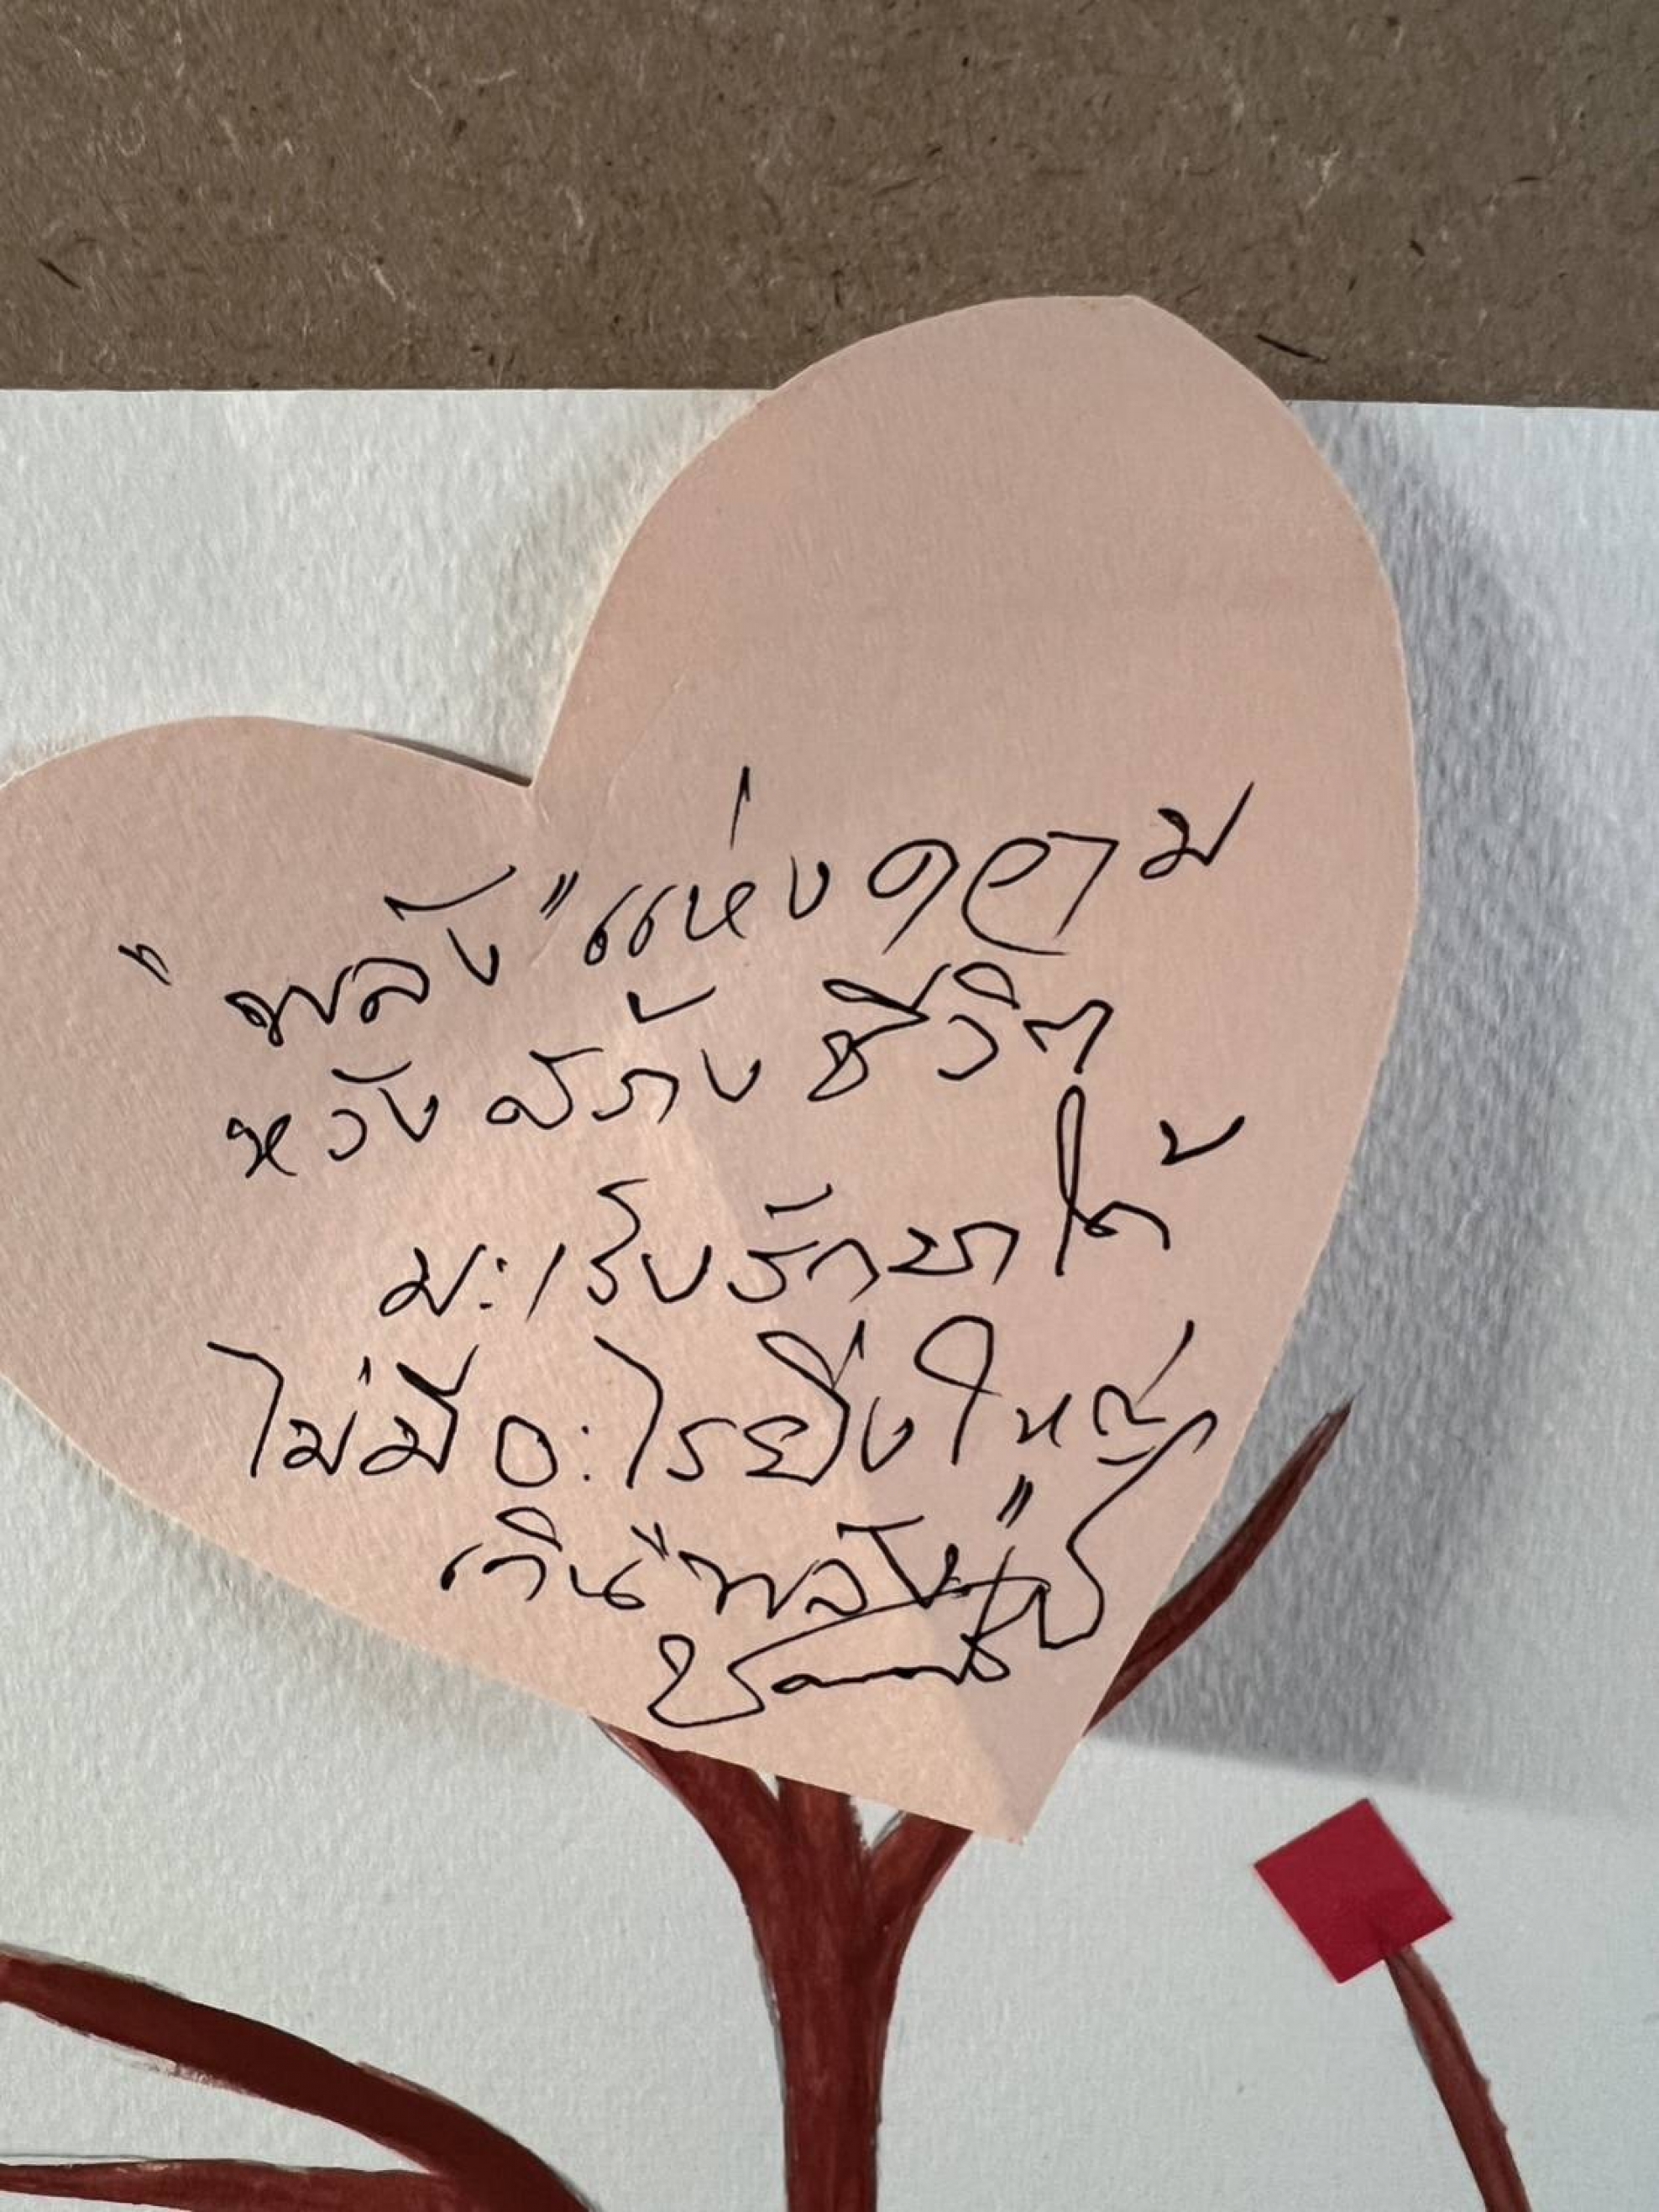 "พลัง" แห่งความ
หวัง สร้าง ชีวิต
มะเร็งรักษาได้
ไม่มีอะไรยิ่งใหญ่
เกิน "พลัง"